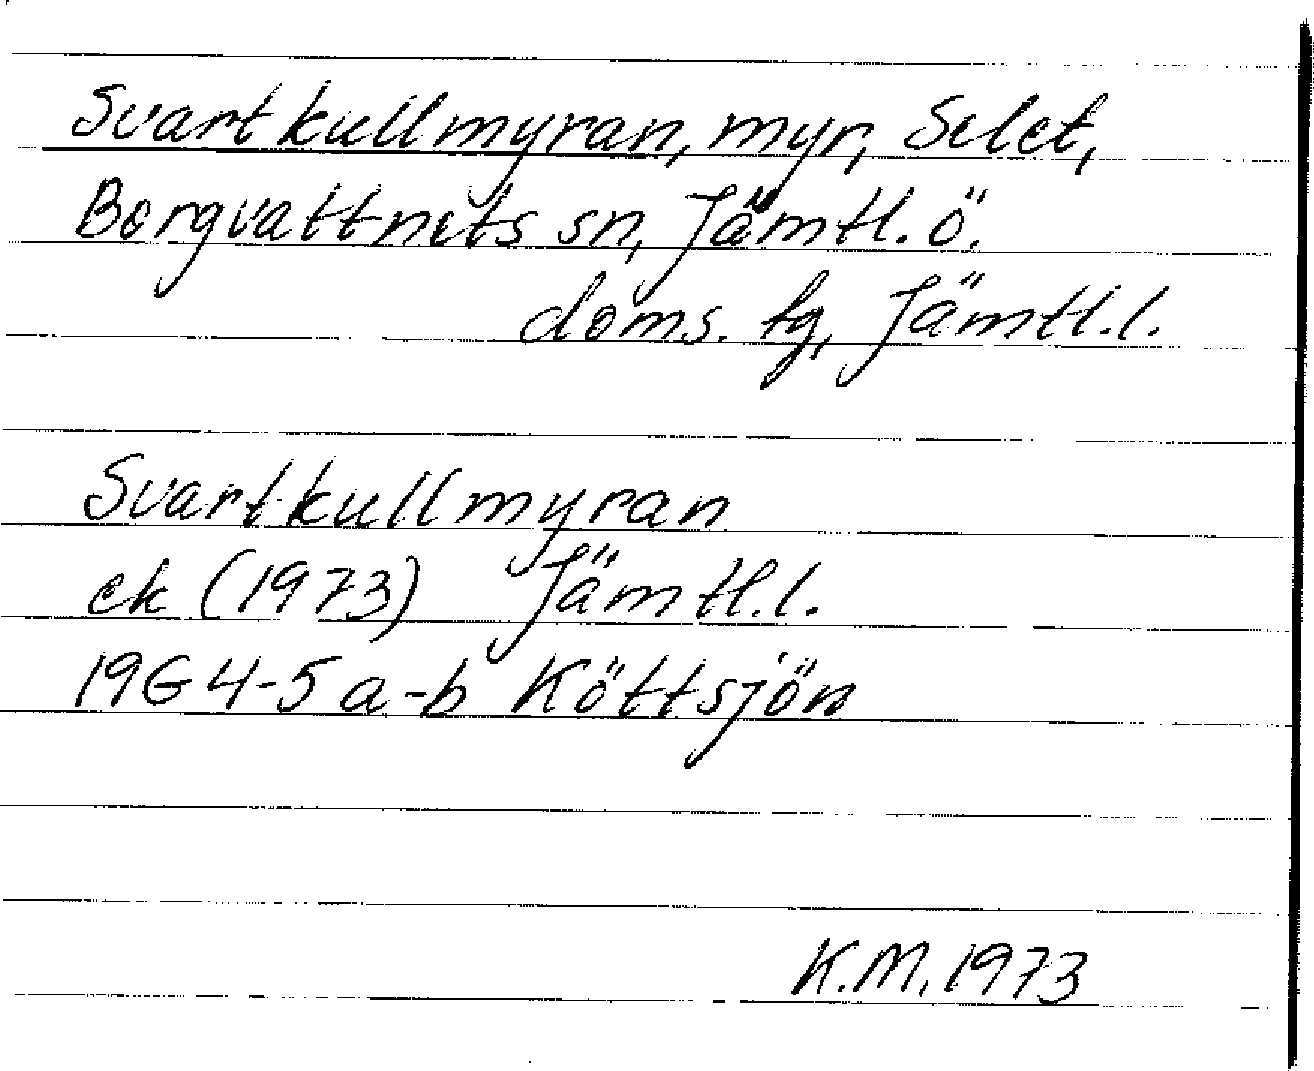 Svartkullmyran, myr, Selet,
Borgvattnets sn, Jämtl. ö.
doms. tg, Jämtl.l.
Svartkullmyran
ek (1973) Jämtl.l.
19G 4-5 a-b Köttsjön
K.M. 1973